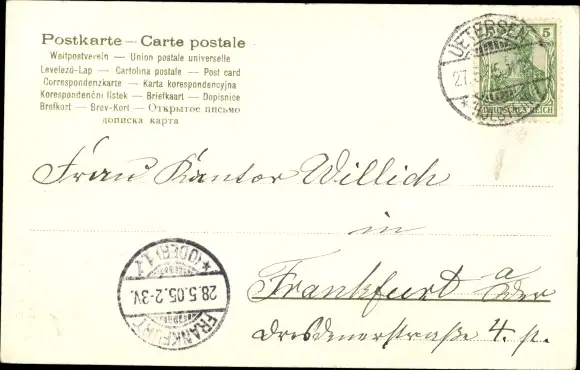 Postkarte — Carte postale
Weltpostverein — Union postale universelle
Levelező-Lap — Cartolina postale — Post card
Correspondenzkarte — Karta korespondencyjna
Korespondenční lístek — Briefkaart — Dopisnice
Brefkort — Brev-Kort — Открытое письмо
дописка карта
UETERSEN
27.5
* (HOLSTEIN)
5
DEUTSCHES REICH
Frau Kantor Willich
in
Frankfurt a Oder
Dresdenerstraße 4. pt.
* (ODER) 1
28.5.05. 2-3V.
FRANKFURT